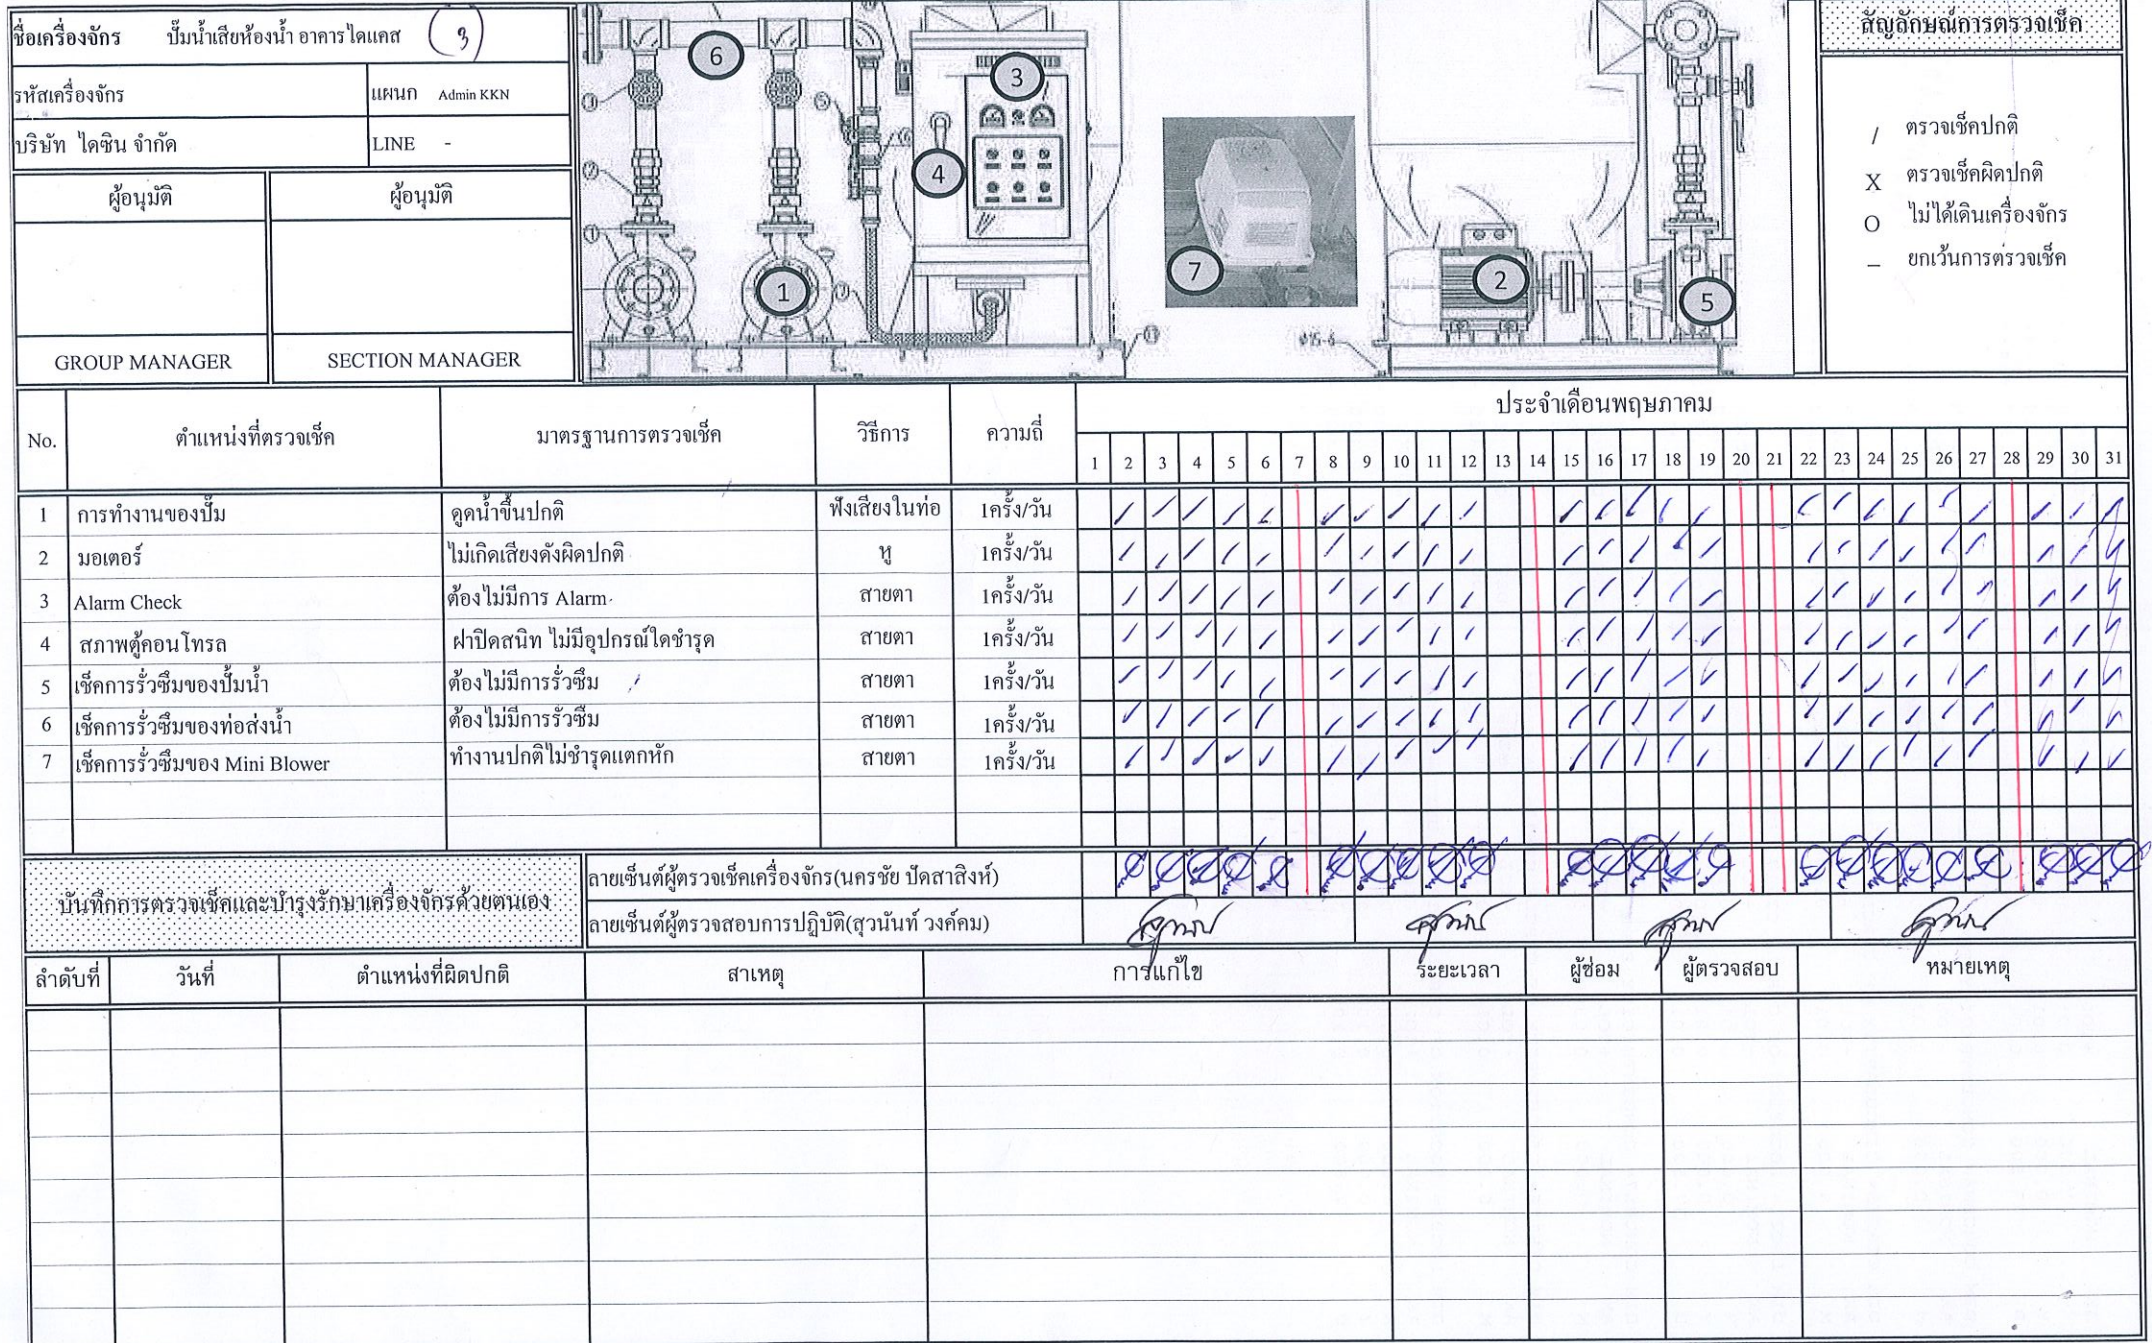 ชื่อเครื่องจักร ปั๊มน้ำเสียห้องน้ำ อาคารไดแคส 3
รหัสเครื่องจักร แผนก Admin KKN
บริษัท ไดซิน จำกัด LINE -
ผู้อนุมัติ ผู้อนุมัติ
GROUP MANAGER SECTION MANAGER
6
3
4
1
7
2
5
สัญลักษณ์การตรวจเช็ค
/ ตรวจเช็คปกติ
X ตรวจเช็คผิดปกติ
O ไม่ได้เดินเครื่องจักร
– ยกเว้นการตรวจเช็ค
No. ตำแหน่งที่ตรวจเช็ค มาตรฐานการตรวจเช็ค วิธีการ ความถี่ ประจำเดือนพฤษภาคม
1 2 3 4 5 6 7 8 9 10 11 12 13 14 15 16 17 18 19 20 21 22 23 24 25 26 27 28 29 30 31
1 การทำงานของปั๊ม ดูดน้ำขึ้นปกติ ฟังเสียงในท่อ 1ครั้ง/วัน
2 มอเตอร์ ไม่เกิดเสียงดังผิดปกติ หู 1ครั้ง/วัน
3 Alarm Check ต้องไม่มีการ Alarm 1ครั้ง/วัน สายตา
4 สภาพตู้คอนโทรล ฝาปิดสนิท ไม่มีอุปกรณ์ใดชำรุด สายตา 1ครั้ง/วัน
5 เช็คการรั่วซึมของปั้มน้ำ ต้องไม่มีการรั่วซึม สายตา 1ครั้ง/วัน
6 เช็คการรั่วซึมของท่อส่งน้ำ ต้องไม่มีการรัวซึม สายตา 1ครั้ง/วัน
7 เช็คการรั่วซึมของ Mini Blower ทำงานปกติไม่ชำรุดแตกหัก สายตา 1ครั้ง/วัน
บันทึกการตรวจเช็คและบำรุงรักษาเครื่องจักรด้วยตนเอง
ลายเซ็นต์ผู้ตรวจเช็คเครื่องจักร(นครชัย ปัดสาสิงห์)
ลายเซ็นต์ผู้ตรวจสอบการปฏิบัติ(สุวนันท์ วงค์คม)
ลำดับที่ วันที่ ตำแหน่งที่ผิดปกติ สาเหตุ การแก้ไข ระยะเวลา ผู้ซ่อม ผู้ตรวจสอบ หมายเหตุ